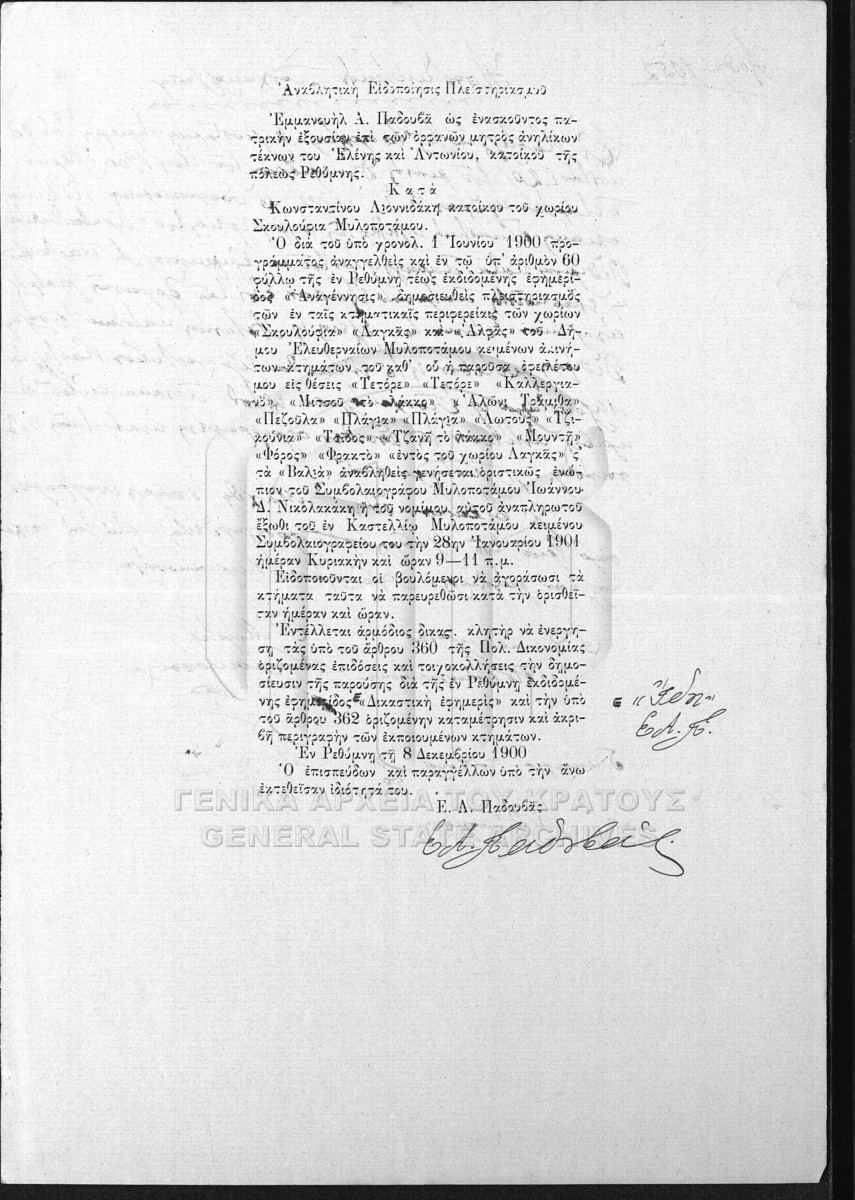 Ἀναβλητικὴ Εἰδοποίησις Πλειστηριασμοῦ
Ἐμμανουὴλ Α. Παδουβᾶ ὡς ἐνασκοῦντος πα-
τρικὴν ἐξουσίαν ἐπὶ τῶν ὀρφανῶν μητρὸς ἀνηλίκων
τέκνων του Ἑλένης καὶ Ἀντωνίου, κατοίκου τῆς
πόλεως Ρεθύμνης.
Κατὰ
Κωνσταντίνου Λιοννιδάκη κατοίκου τοῦ χωρίου
Σκουλούφια Μυλοποτάμου.
Ὁ διὰ τοῦ ὑπὸ χρονολ. 1 Ἰουνίου 1900 προ-
γράμματος ἀναγγελθεὶς καὶ ἐν τῷ ὑπ' ἀριθμὸν 60
φύλλῳ τῆς ἐν Ρεθύμνῃ τέως ἐκδιδομένης ἐφημερί-
δος «Ἀναγέννησις» δημοσιευθεὶς πλειστηριασμὸς
τῶν ἐν ταῖς κτηματικαῖς περιφερείαις τῶν χωρίων
«Σκουλούφια» «Λαγκᾶς» καὶ «Ἀλφᾶς» τοῦ Δή-
μου Ἐλευθερναίων Μυλοποτάμου κειμένων ἀκινή-
των κτημάτων τοῦ καθ' οὗ ἡ παροῦσα ὀφειλέτου
μου εἰς θέσεις «Τετόρε» «Τετόρε» «Καλλεργια-
νὸ» «Μιτσοῦ τὸ λάκκο» «Ἁλῶνι Τράμιθα»
«Πεζοῦλα» «Πλάγια» «Πλάγια» «Λωτοὺς» «Τζι-
κούνια» «Τζανῆ τὸ λάκκο» «Μουντῆ»
«Φόρος» «Φρακτὸ» «ἐντὸς τοῦ χωρίου Λαγκᾶς» ς'
τὰ «Βαλιὰ» ἀναβληθεὶς γενήσεται ὁριστικῶς ἐνώ-
πιον τοῦ Συμβολαιογράφου Μυλοποτάμου Ἰωάννου
Δ. Νικολακάκη ἢ τοῦ νομίμου αὐτοῦ ἀναπληρωτοῦ
ἔξωθι τοῦ ἐν Καστελλίῳ Μυλοποτάμου κειμένου
Συμβολαιογραφείου του τὴν 28ην Ἰανουαρίου 1901
ἡμέραν Κυριακὴν καὶ ὥραν 9—11 π.μ.
Εἰδοποιοῦνται οἱ βουλόμενοι νὰ ἀγοράσωσι τὰ
κτήματα ταῦτα νὰ παρευρεθῶσι κατὰ τὴν ὁρισθεῖ-
σαν ἡμέραν καὶ ὥραν.
Ἐντέλλεται ἁρμόδιος δικας. κλητὴρ νὰ ἐνεργή-
σῃ τὰς ὑπὸ τοῦ ἄρθρου 360 τῆς Πολ. Δικονομίας
ὁριζομένας ἐπιδόσεις καὶ τοιχοκολλήσεις τὴν δημο-
σίευσιν τῆς παρούσης διὰ τῆς ἐν Ρεθύμνῃ ἐκδιδομέ-
νης ἐφημερίδος «Δικαστικὴ ἐφημερὶς» καὶ τὴν ὑπὸ
τοῦ ἄρθρου 362 ὁριζομένην καταμέτρησιν καὶ ἀκρι-
βῆ περιγραφὴν τῶν ἐκποιουμένων κτημάτων.
Ἐν Ρεθύμνῃ τῇ 8 Δεκεμβρίου 1900
Ὁ ἐπισπεύδων καὶ παραγγέλλων ὑπὸ τὴν ἄνω
ἐκτεθεῖσαν ἰδιότητά του.
Ε. Α. Παδουβᾶς
Ε Α. Παδουβᾶς.
= "Ἴδη"
Ε Α. Π.
ΓΕΝΙΚΑ ΑΡΧΕΙΑ ΤΟΥ ΚΡΑΤΟΥΣ
GENERAL STATE ARCHIVES